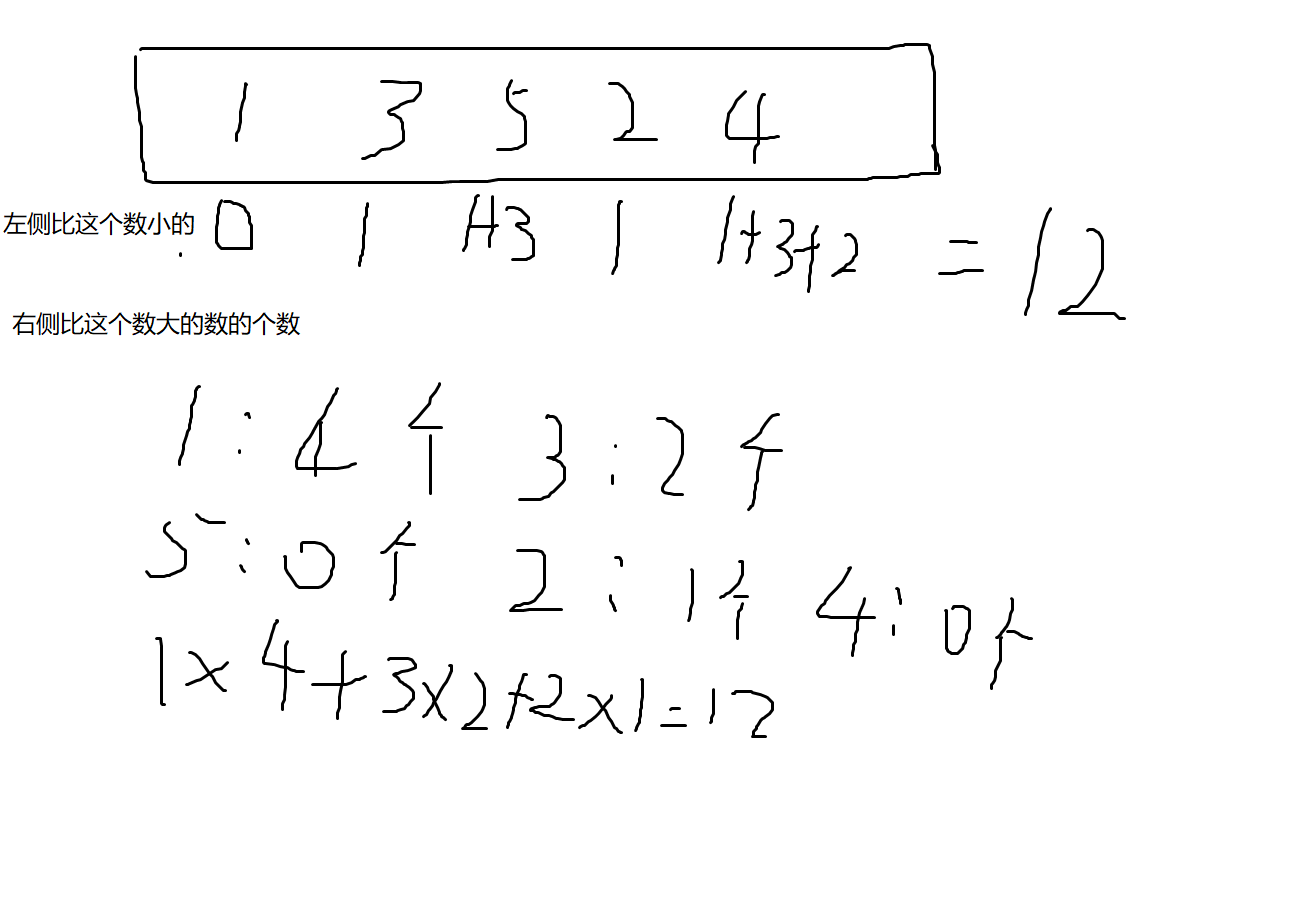 1 3 5 2 4
左侧比这个数小的 0 1 1+3 1 1+3+2 = 12
右侧比这个数大的数的个数
1:4个 3:2个
5:0个 2:1个 4:0个
1×4+3×2+2×1=12